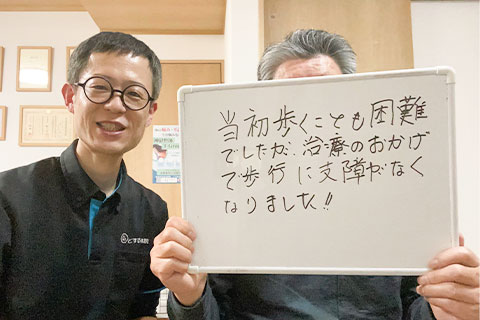 当初歩くことも困難
でしたが、治療のおかげ
で歩行に支障がなく
なりました!!